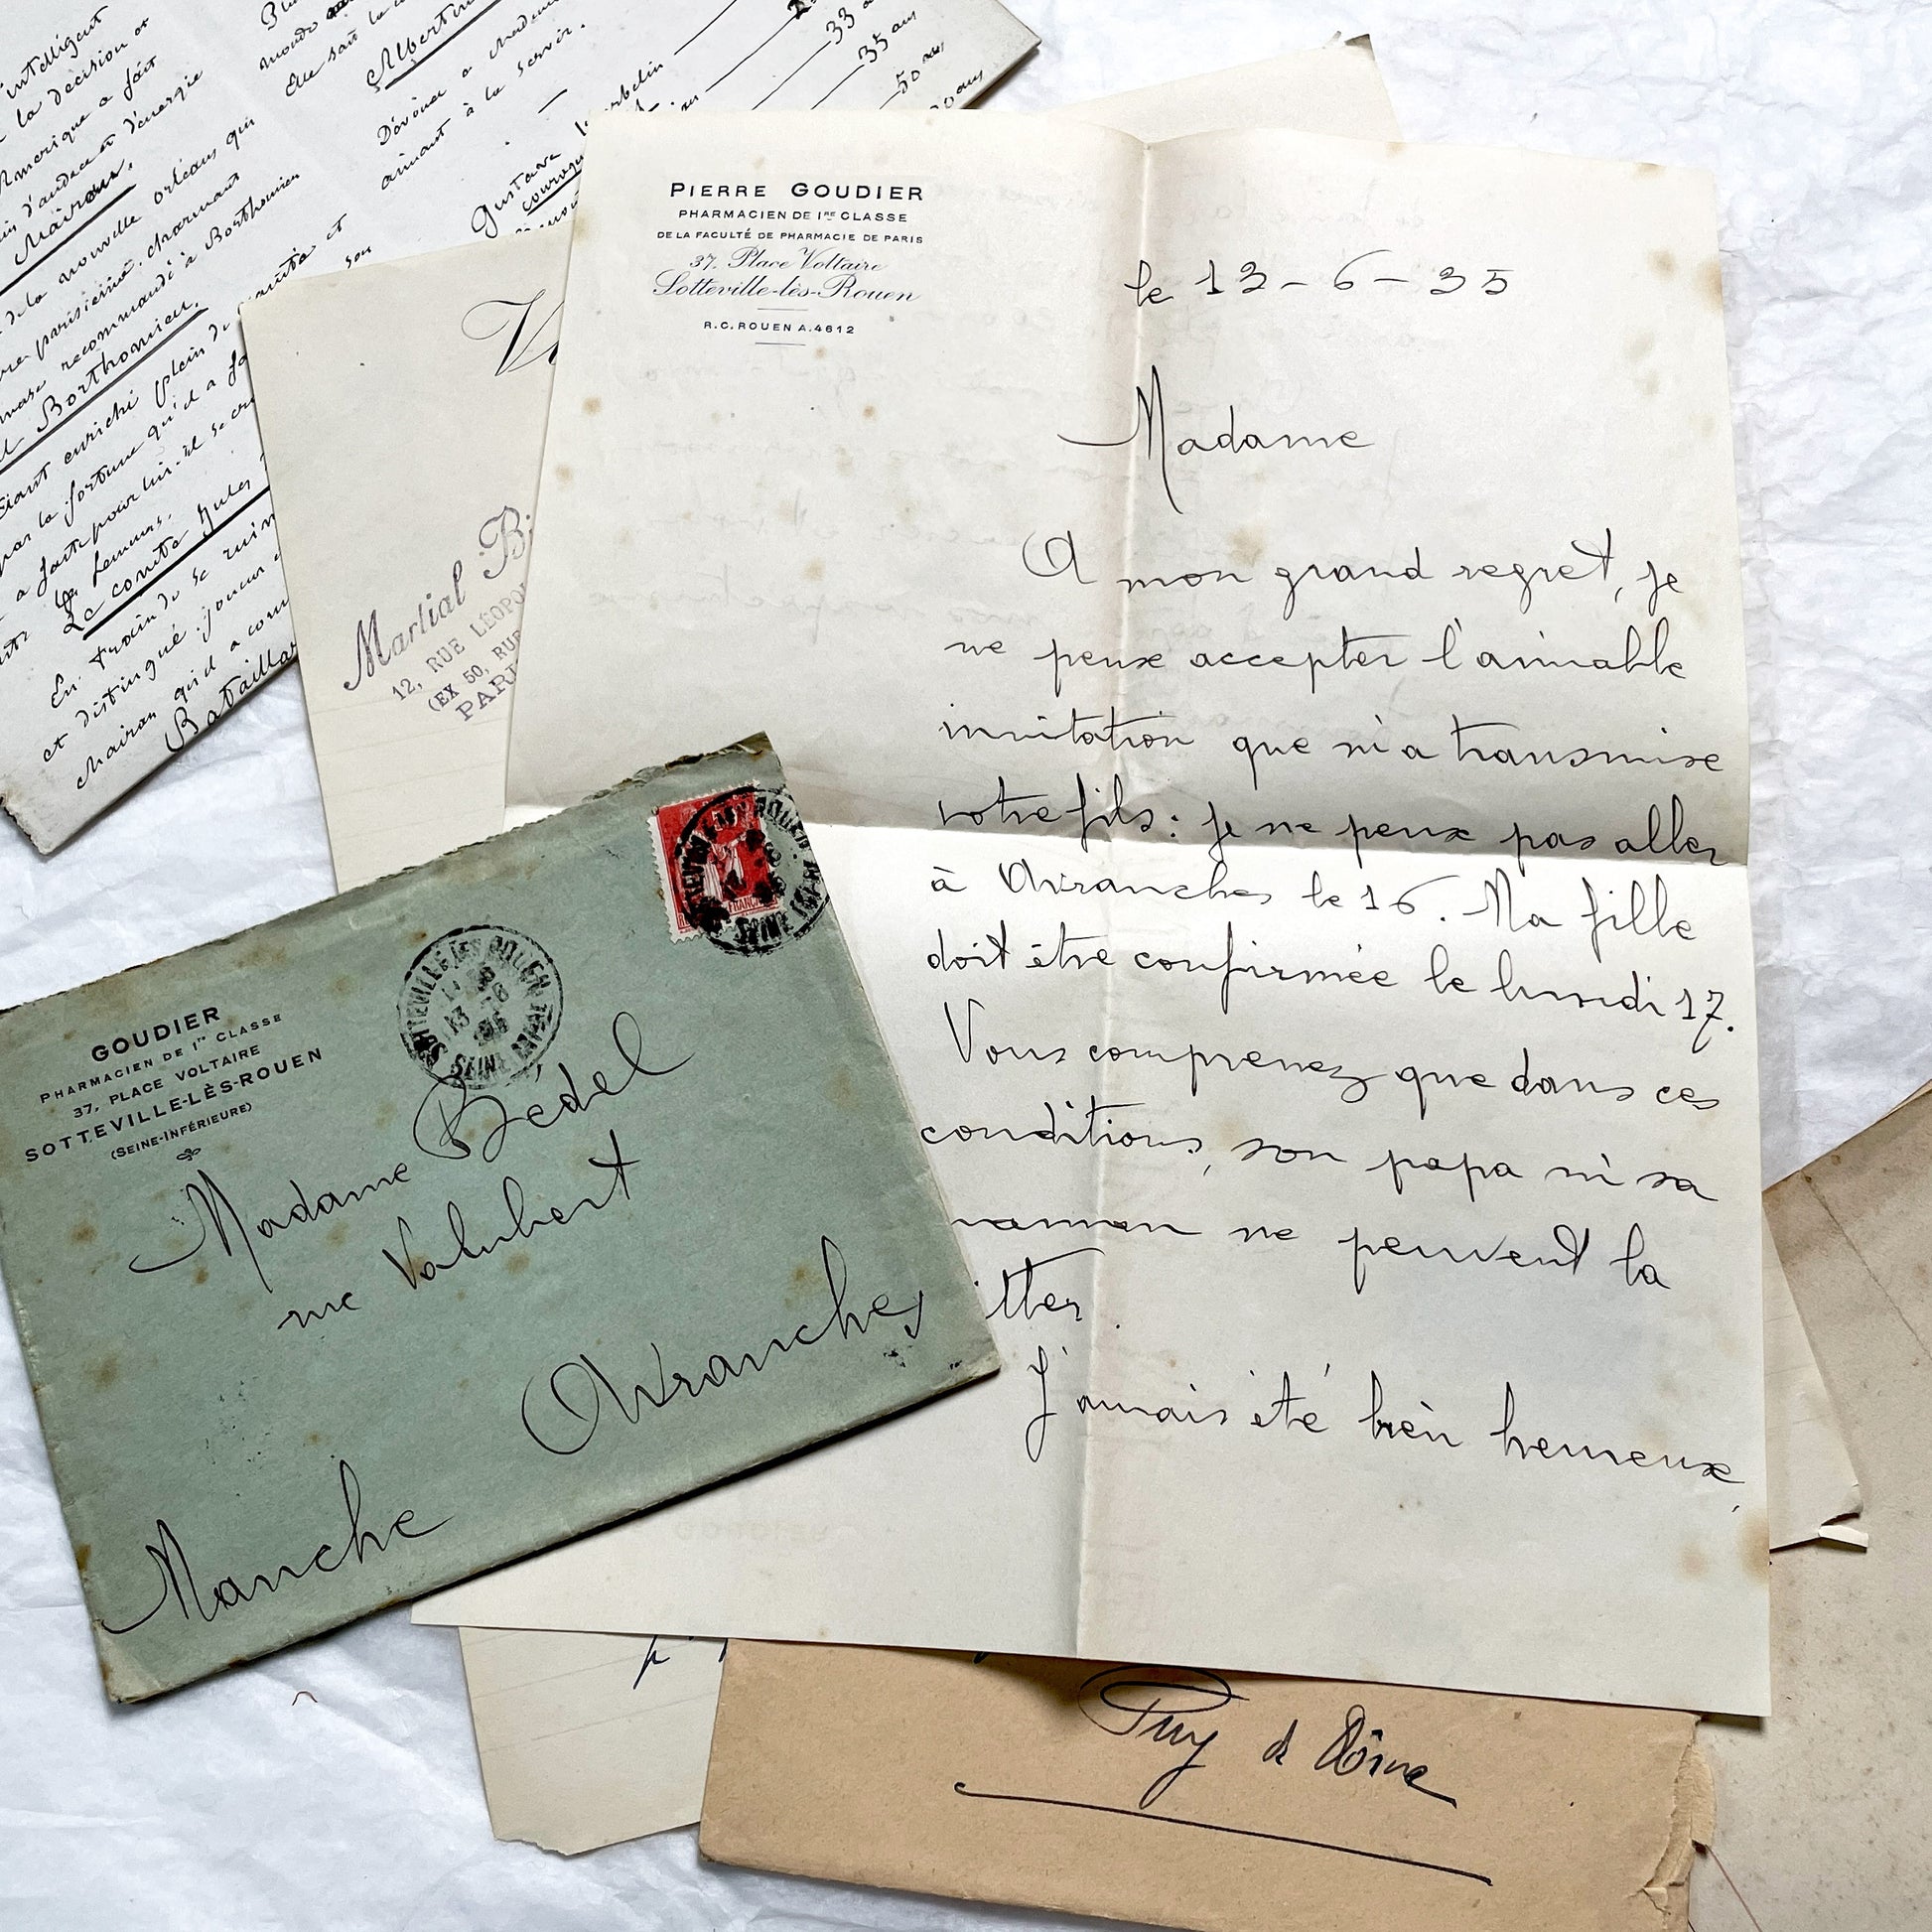 intelligent
la décision et
Amérique a fait
d'audace et d'énergie
de la nouvelle orléans qui
parisienne, charmant
recommandé à Borthomieu
Borthomieu.
enrichi plein de
par la fortune qu'il a
a faite pour lui - il se
Le comte Jules
En train de se
et distingué. joueur
qu'il a
Bataillar
Elle sait la
Albertin
Dévouée a
aimant à la servir.
Gustave
33 a
35 ans
50 ans
0 ans
Martial B
12, RUE LÉOPO
(EX 50, RUE
PARI
PIERRE GOUDIER
PHARMACIEN DE 1RE CLASSE
DE LA FACULTÉ DE PHARMACIE DE PARIS
37, Place Voltaire
Sotteville-lès-Rouen
R.C. ROUEN A.4612
le 13-6-35
Madame
A mon grand regret, je
ne peux accepter l'aimable
invitation que m'a transmise
votre fils : je ne peux pas aller
à Avranches le 16. Ma fille
doit être confirmée le lundi 17.
Vous comprenez que dans ces
conditions, son papa ni sa
maman ne peuvent la
itter.
J'aurais été bien heureux,
GOUDIER
PHARMACIEN DE 1re CLASSE
37, PLACE VOLTAIRE
SOTTEVILLE-LÈS-ROUEN
(SEINE-INFÉRIEURE)
SOTTEVILLE LES ROUEN
13
35
SEINE INFRE
Madame Bédel
rue Valhubert
Avranches
Manche
Puy de Dôme